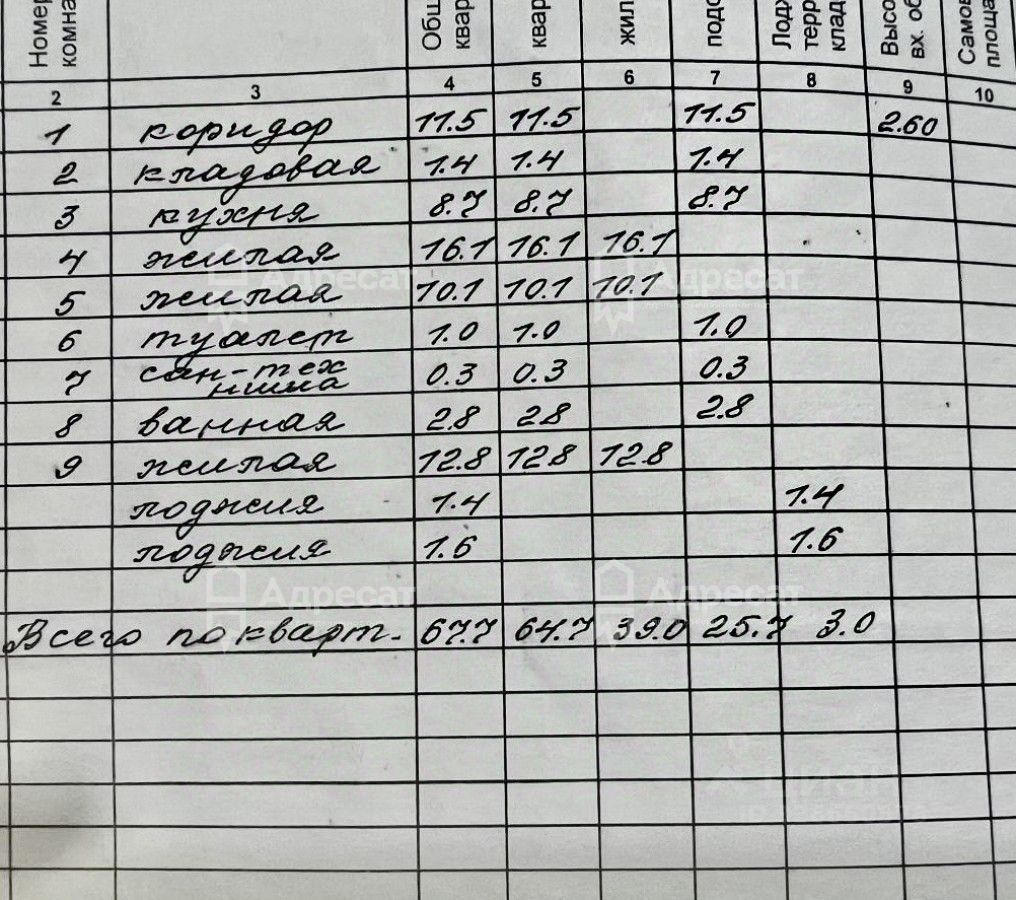 Номер комна Общ квар квар жил подс Лодж терр клад Высо вх. об Самов площа
2 3 4 5 6 7 8 9 10
1 коридор 11.5 11.5 11.5 2.60
2 кладовая 1.4 1.4 1.4
3 кухня 8.7 8.7 8.7
4 жилая 16.1 16.1 16.1
5 жилая 10.1 10.1 10.1
6 туалет 1.0 1.0 1.0
7 сан-тех ниша 0.3 0.3 0.3
8 ванная 2.8 2.8 2.8
9 жилая 12.8 12.8 12.8
лоджия 1.4 1.4
лоджия 1.6 1.6
Всего по кварт. 67.7 64.7 39.0 25.7 3.0
Адресат Адресат
Адресат Адресат
Циан